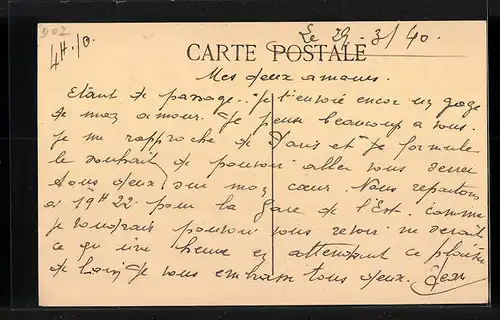 Le 29-3/40.
4H.10
CARTE POSTALE
Mes deux amours.
Etant de passage. Je t'envoie encor un gage
de mon amour. Je pense beaucoup a vous.
Je me rapproche de Paris et Je formule
le souhait de pouvoir aller vous serrer
tous deux sur mon cœur. Nous repartons
a 19H22 pour la Gare de l'Est. comme
je voudrais pouvoir vous revoir ne serait
ce qu'une heure en attendant ce plaisir
de loin Je vous embrasse tous deux. Jean